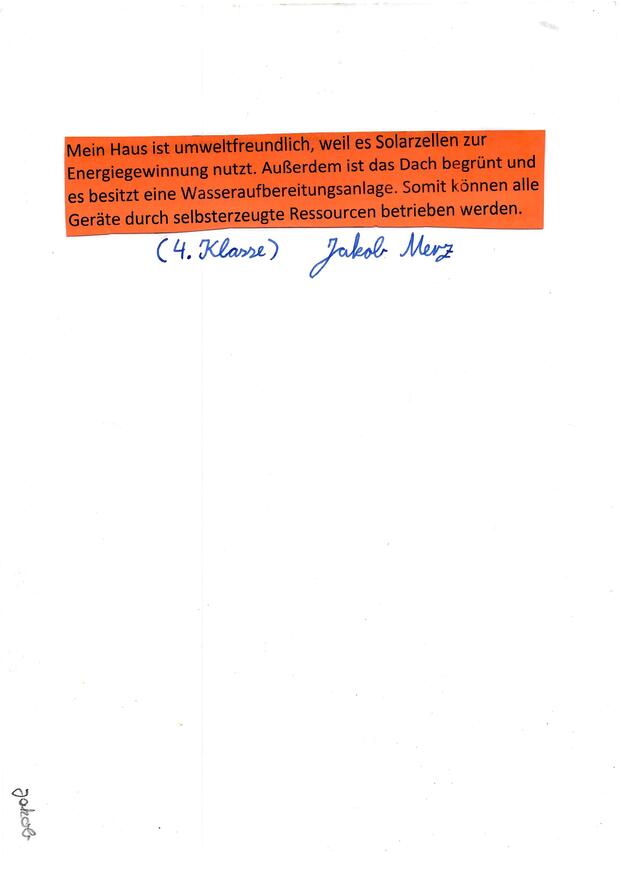 Mein Haus ist umweltfreundlich, weil es Solarzellen zur
Energiegewinnung nutzt. Außerdem ist das Dach begrünt und
es besitzt eine Wasseraufbereitungsanlage. Somit können alle
Geräte durch selbsterzeugte Ressourcen betrieben werden.
(4. Klasse) Jakob Merz
Jakob